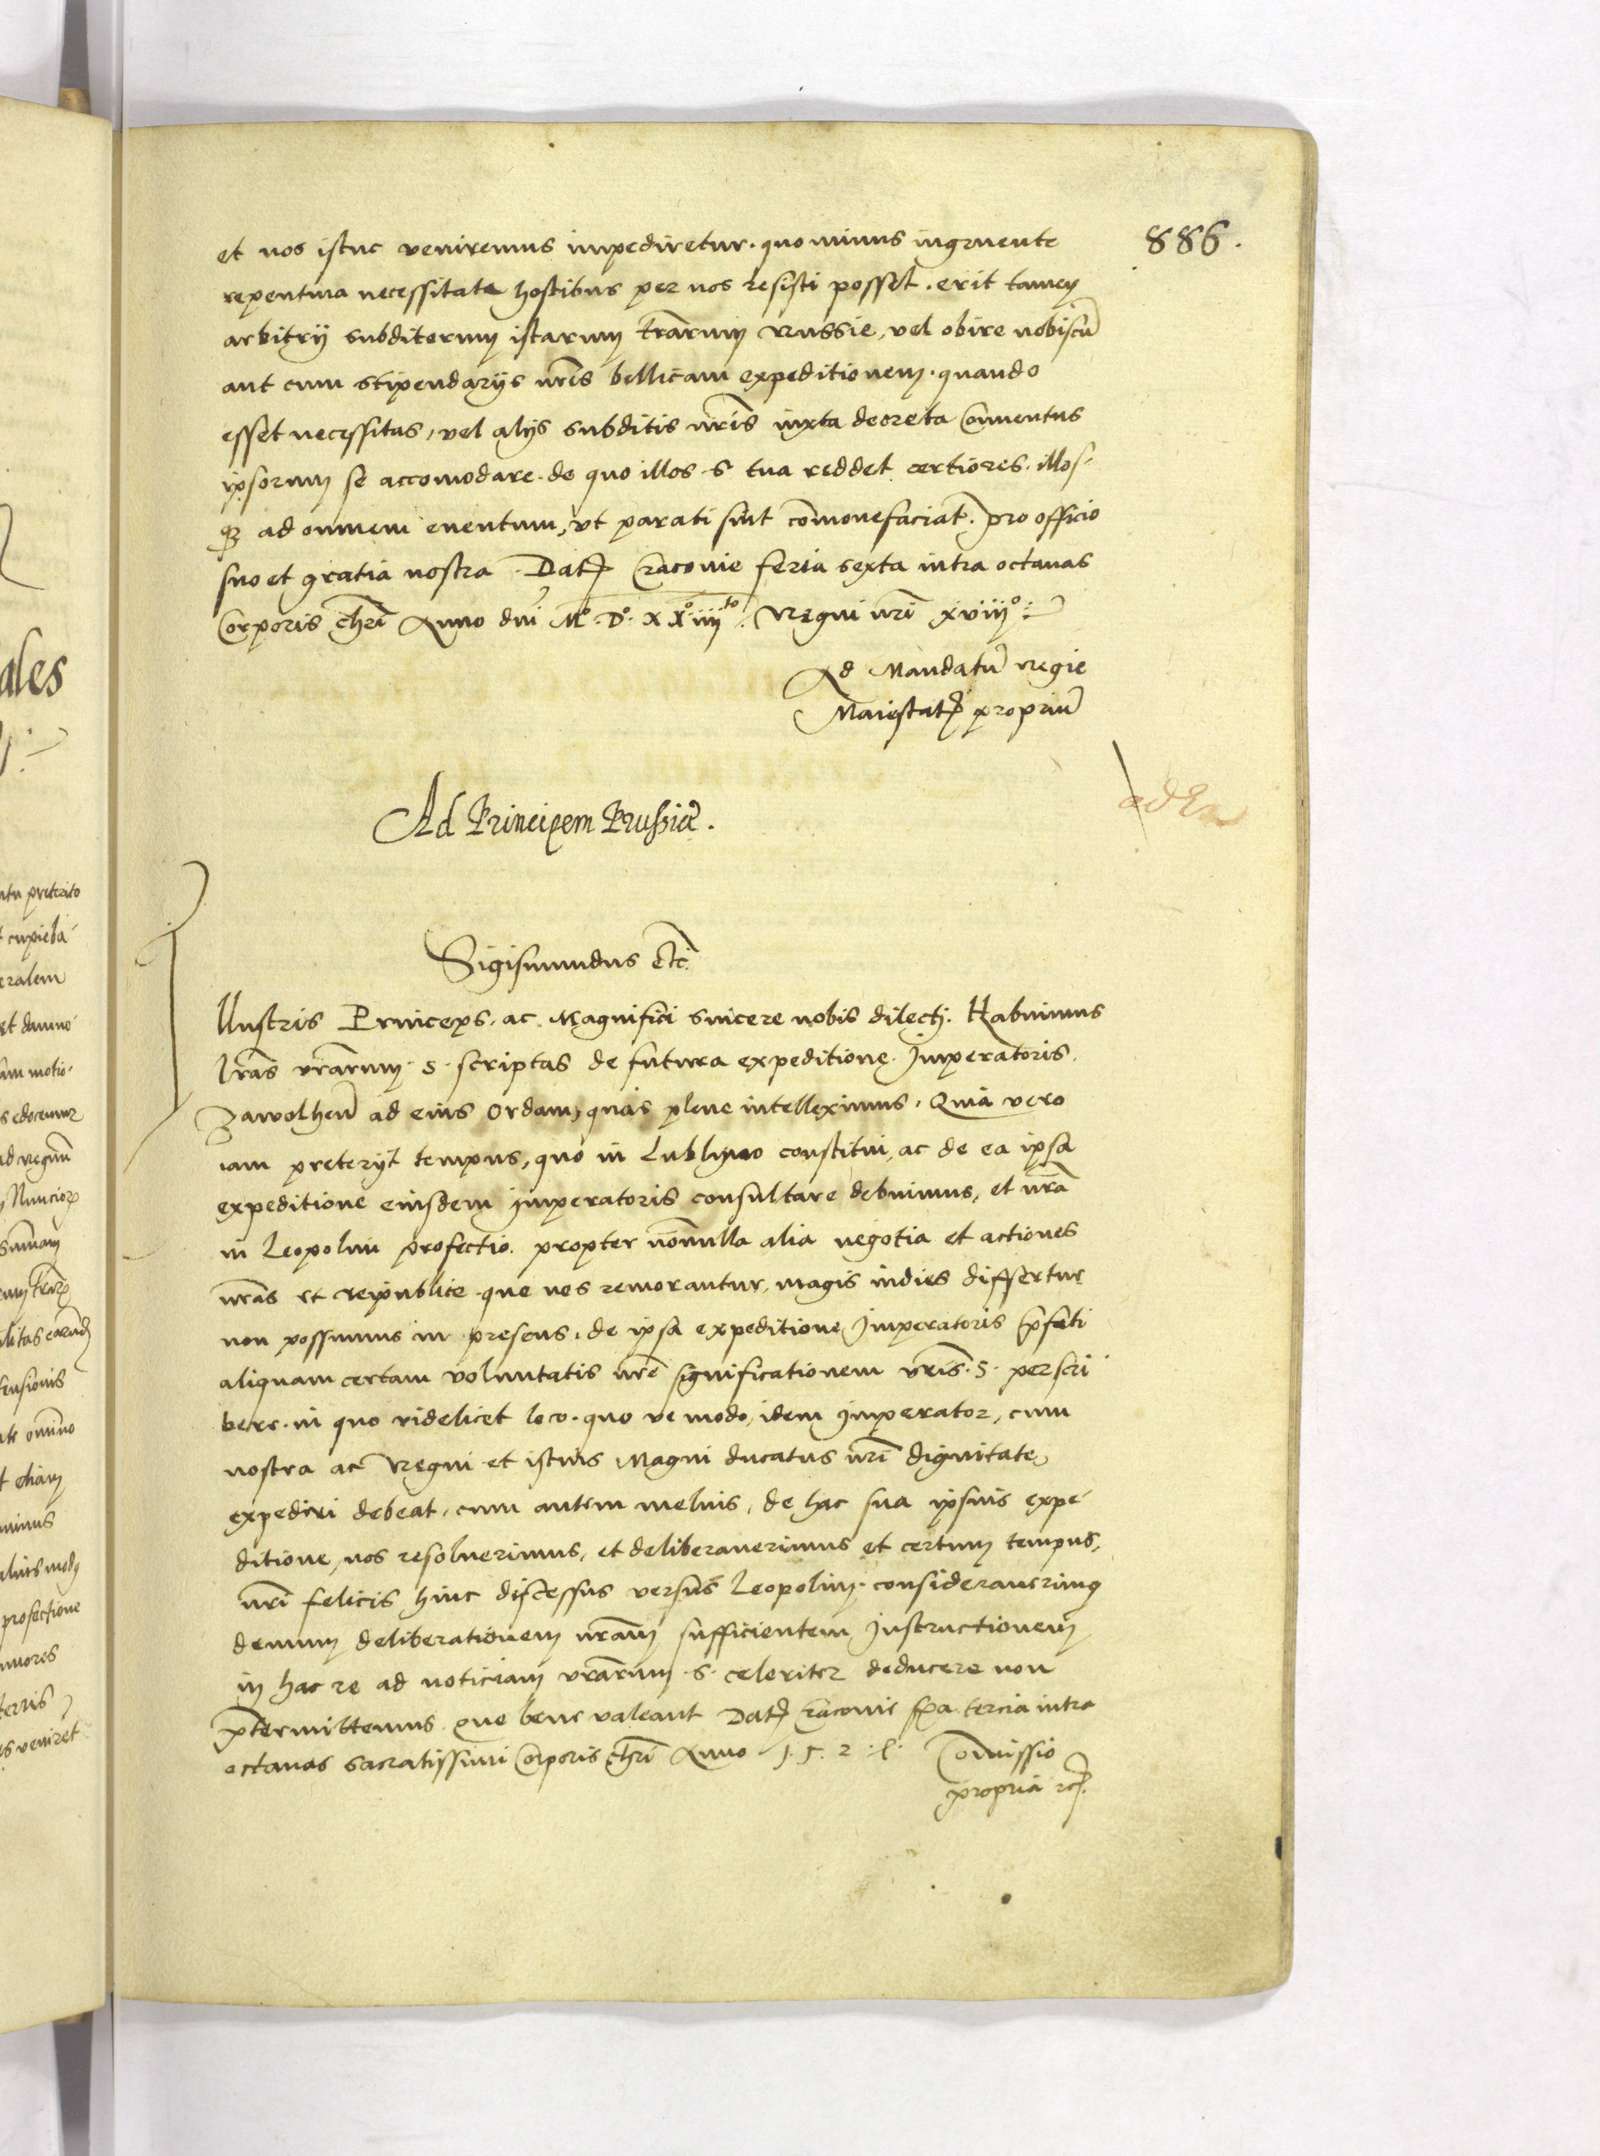 886.
et nos istuc veniremus impediretur. quo minus ingruente
repentina necessitate hostibus per nos resisti posset. erit tamen
arbitrij subditorum istarum tr̄arum Russie, vel obire nobiscū
aut cum stipendarijs nr̄is bellicam expeditionem. quando
esset necessitas, vel alijs subditis nr̄is iuxta decreta Conuentus
ipsorum se accomodare. de quo illos S tua reddet certiores. illos-
qȝ ad omnem euentum, vt parati sint com̄onefaciat. pro officio
suo et gratia nostra. Datꝭ Cracouie feria sexta intra octauas
Corporis chr̄i Anno dnī Mº. Dº. XXº.iiijto. Regni nr̄i xviijº.
Ad Mandatū regie
Maiestatꝭ propriū
Ad Principem Prussiæ.
Sigismundus etc̄.
Illustris Princeps. ac Magnifici sincere nobis dilecti. Habuimus
lr̄as vr̄arum. S. scriptas de futura expeditione Imperatoris
Zawolhen̄ ad eius Ordam, quas plene intelleximus. Quia vero
iam preterijt tempus, quo in Lublyno constitui, ac de ea ipsa
expeditione eiusdem imperatoris consultare debuimus, et nr̄a
in Leopolim profectio. propter nōnulla alia negotia et actiones
nr̄as et reipublice que nos remorantur, magis indies differtur
non possumus in presens. de ipsa expeditione Imperatoris p̄fati
aliquam certam voluntatis nr̄e significationem vr̄is. S. perscri
bere. in quo videlicet loco. quo ve modo, idem imperator, cum
nostra ac Regni et istius Magni ducatus nr̄i dignitate,
expediri debeat. cum autem melius, de hac sua ipsius expe-
ditione, nos resoluerimus, et deliberauerimus et certum tempus,
nr̄i felicis hinc discessus versus Leopolim. considerauerimꝰ
demum deliberationem nr̄am sufficientem Instructionem
in hac re ad noticiam vr̄arum. S. celeriter deducere non
p̄termittemus. que bene valeant Datꝭ Cracouie fr̄ia tercia intra
octauas sacratissimi Corporis chr̄i Anno 1.5.2.4. Com̄issio
propria